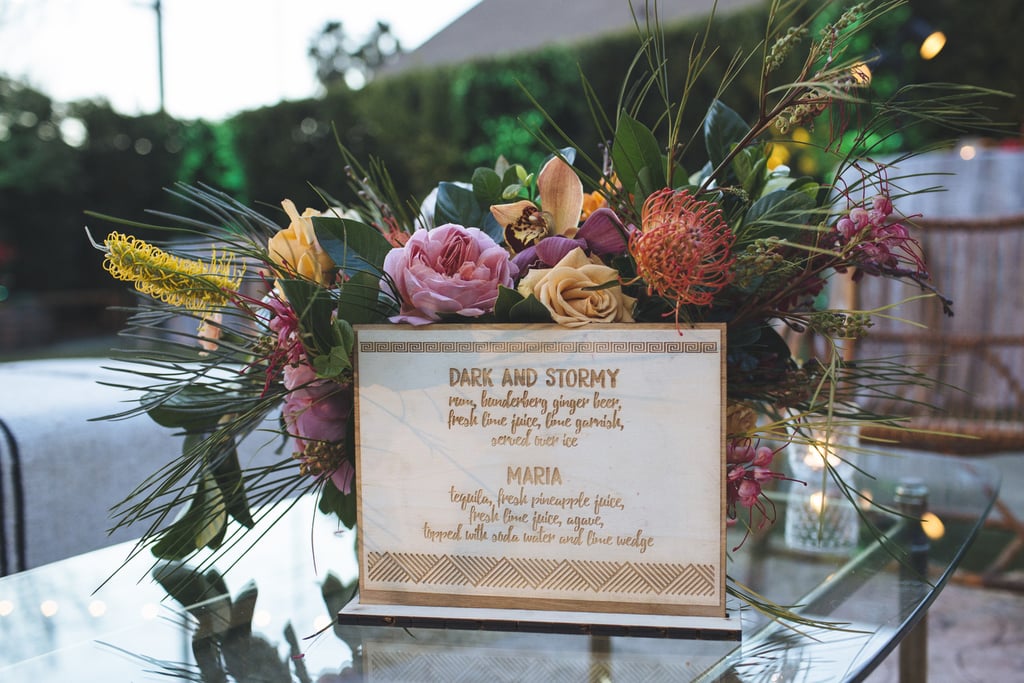 DARK AND STORMY
rum, bunderberg ginger beer,
fresh lime juice, lime garnish,
served over ice
MARIA
tequila, fresh pineapple juice,
fresh lime juice, agave,
topped with soda water and lime wedge